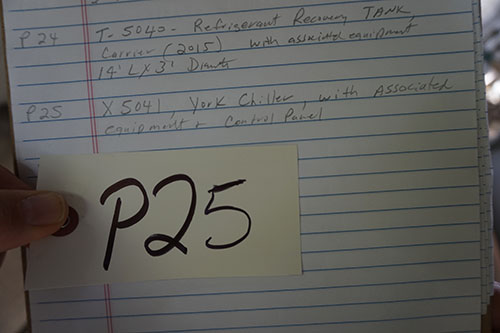 P24 T-5040- Refrigerant Recovery TANK,
Carrier (2015) with associated equipment
14' L X 3' Diameter
P25 X 5041, York Chiller, with Associated
equipment + Control Panel
P25